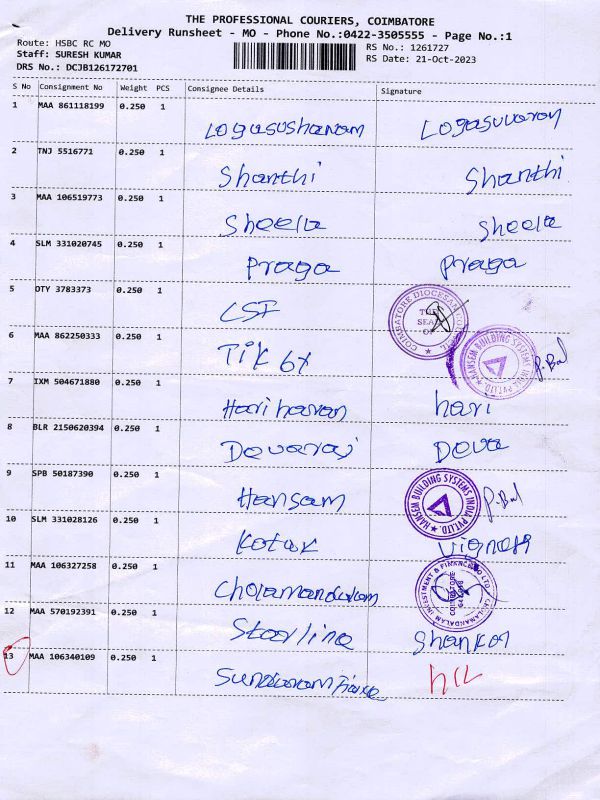 THE PROFESSIONAL COURIERS, COIMBATORE
Delivery Runsheet - MO - Phone No.:0422-3505555 - Page No.:1
Route: HSBC RC MO
RS No.: 1261727
Staff: SURESH KUMAR
RS Date: 21-Oct-2023
DRS No.: DCJB126172701
S No Consignment No Weight PCS Consignee Details Signature
1 MAA 861118199 0.250 1 Logasushanam Logasuvaran
2 TNJ 5516771 0.250 1 Shanthi Shanthi
3 MAA 106519773 0.250 1 Sheella Sheela
4 SLM 331020745 0.250 1 Praga Praga
5 OTY 3783373 0.250 1 CSI COIMBATORE DIOCESAN THE SEAL OF
6 MAA 862250333 0.250 1 Tik HANSEM BUILDING SYSTEMS INDIA PVT LTD.
7 IXM 504671880 0.250 1 Hari haran hari
8 BLR 2150620394 0.250 1 Devaraj Deva
9 SPB 50187390 0.250 1 Hansam HANSEM BUILDING SYSTEMS INDIA PVT.LTD.
10 SLM 331028126 0.250 1 Kotak Vignesh
11 MAA 106327258 0.250 1 Cholamandalam CHOLAMANDALAM INVESTMENT & COIMBATORE
12 MAA 570192391 0.250 1 Starline Shankar
13 MAA 106340109 0.250 1 Sundaram